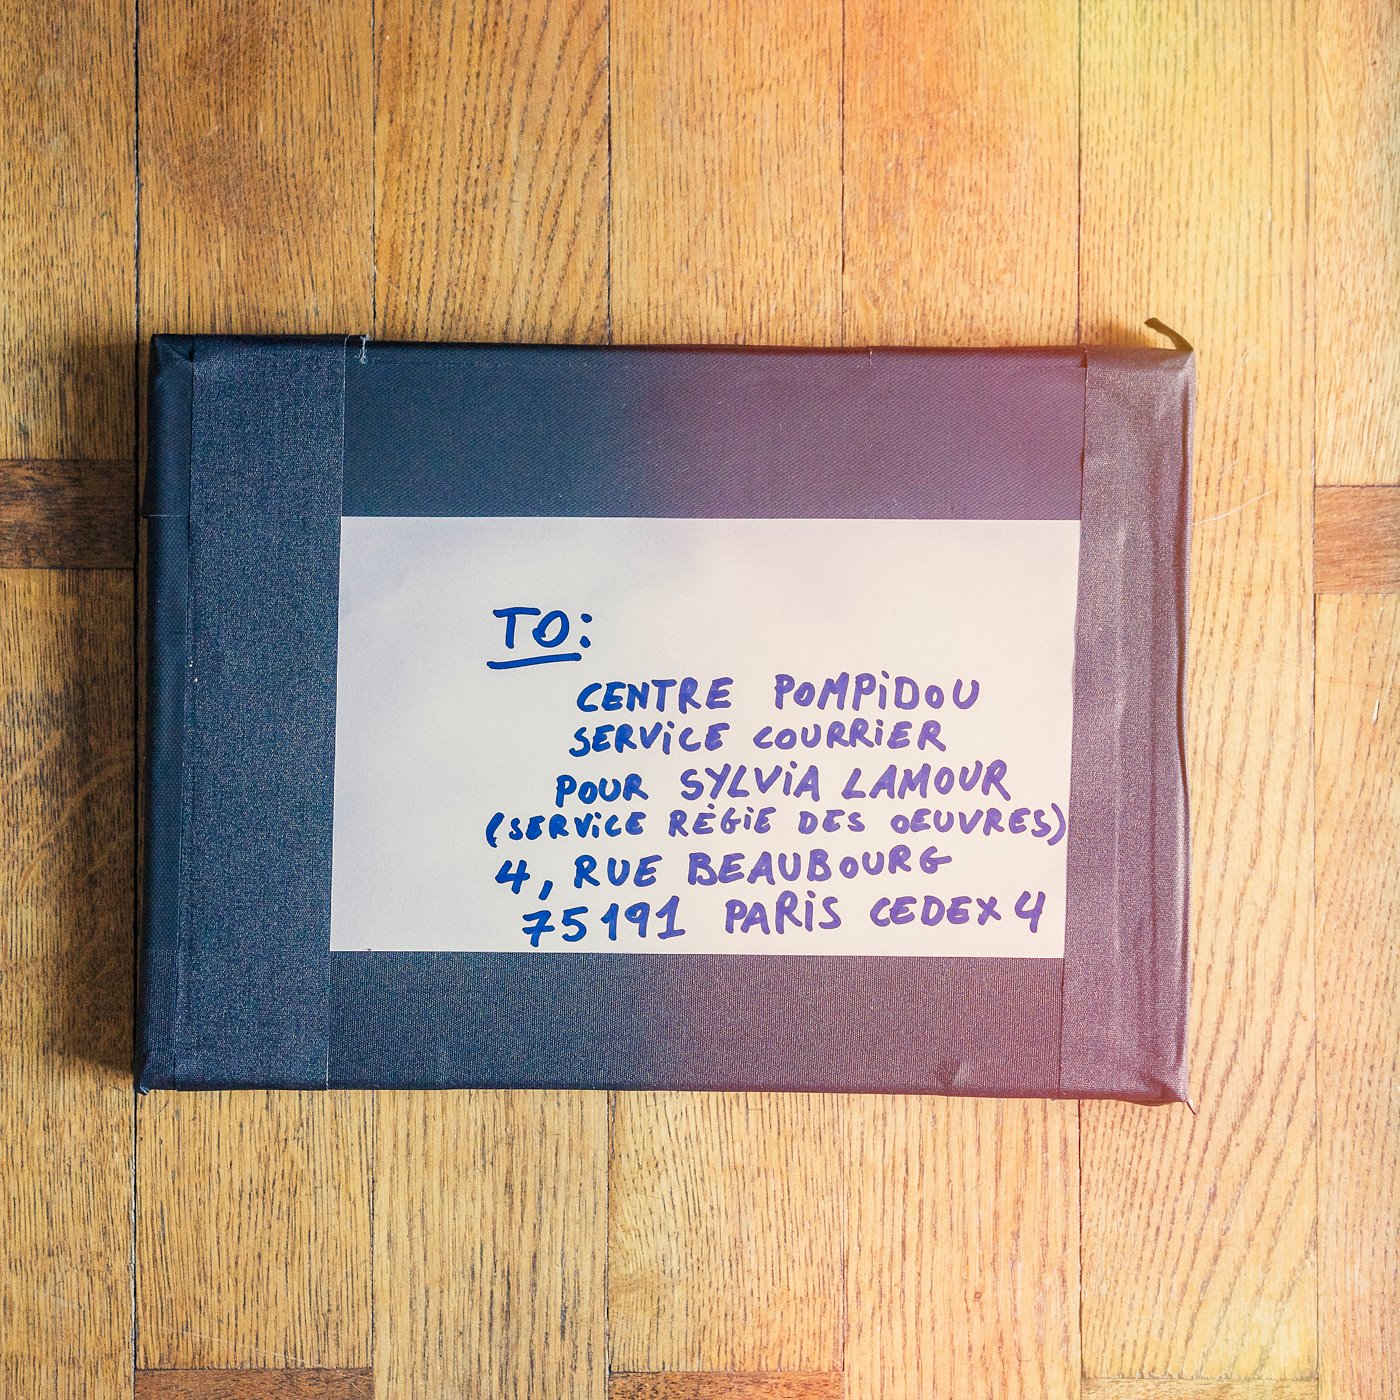 TO:
CENTRE POMPiDOU
SERViCE COURRiER
POUR SYLViA LAMOUR
(SERViCE RÈGiE DES OEUVRES)
4, RUE BEAUBOURG
75191 PARiS CEDEX 4